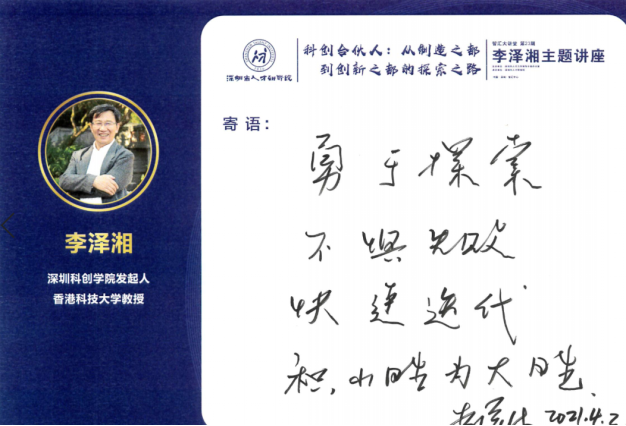 深圳市人才研修院
科创合伙人：从制造之都
到创新之都的探索之路
智汇大讲堂 第23期
李泽湘主题讲座
李泽湘
深圳科创学院发起人
香港科技大学教授
寄语：
勇于探索
不惧失败
快速迭代
积小胜为大胜
李泽湘 2021.4.2